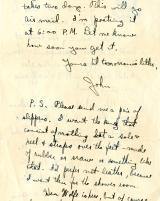 takes two days. This will go
air mail. I'm posting it
at 6:00 P.M. Let me know
how soon you get it.
Yours til tomorrow's letter,
John
P.S. Please send me a pair of
slippers. I want the kind that
consist of nothing but a sole
heel & straps over the foot - made
of rubber or
something like
that. I'd prefer not leather, because
I want this for the shower room
is here, but of course